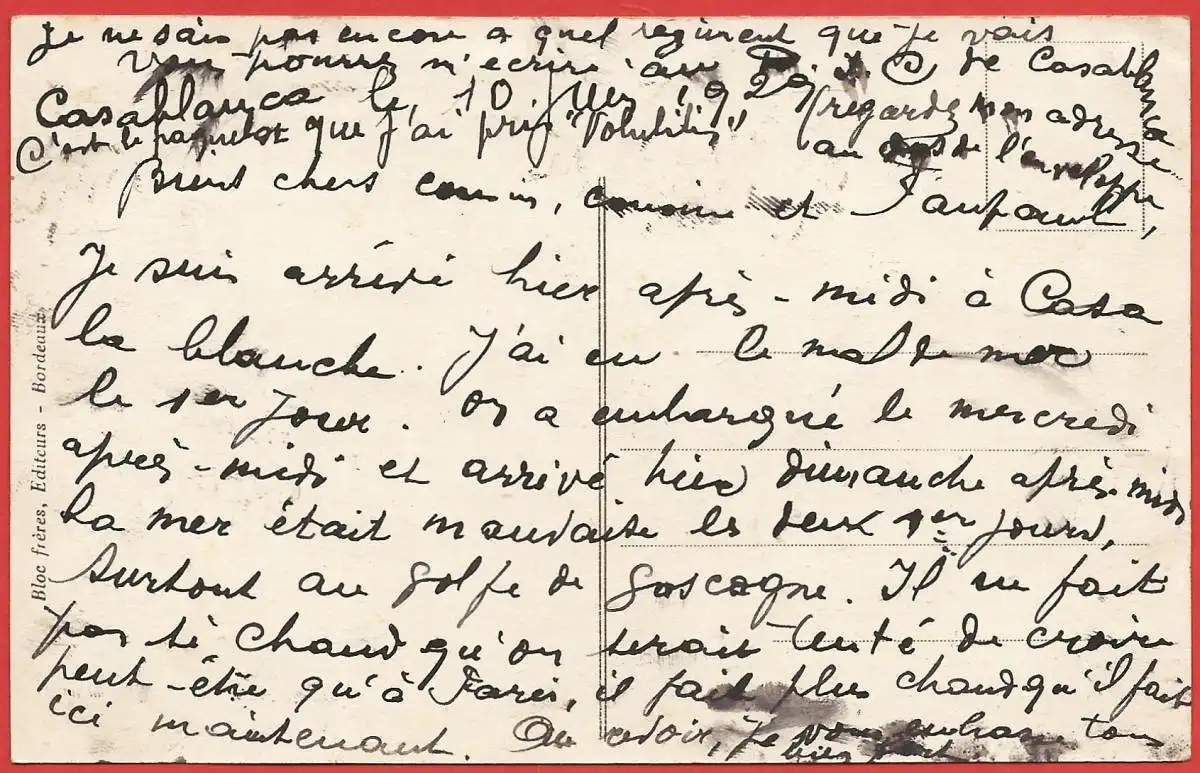 Je ne sais pas encore a quel régiment que je vais
Vous pourrez m'écrire au D. I. C de Casablanca
Casablanca le, 10 1929 (regardez mon adresse
C'est le paquebot que j'ai pris "Volubilis" au dos de l'enveloppe
Bien chers cousin, cousine et
Je suis arrivé hier après-midi à Casa
la blanche. J'ai eu le mal de mer
le 1er jour. on a embarqué le mercredi
après-midi et arrivé hier dimanche après-midi
la mer était mauvaise les deux 1er jours,
surtout au golfe de gascogne. Il ne fait
pas si chaud qu'on serait tenté de croire
peut-être qu'à il fait plus chaud qu'il fait
ici maintenant. Au revoir, je vous embrasse tous
bien fort
Bloc frères, Editeurs - Bordeaux